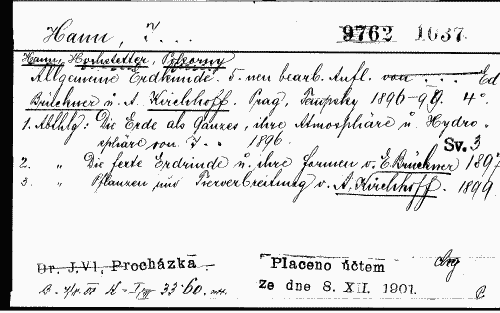 Hann, J... 9762 1637.
Hann, Hochstetter, Pokorny
Allgemeine Erdkunde. 5. neu bearb. Aufl. von . . . Ed
Brückner u. A. Kirchhoff. Prag, Tempsky 1896-99. 4°.
1. Abthlg: Die Erde als Ganzes, ihre Atmosphäre u. Hydro-
sphäre von J. . 1896.
Sv. 3
2. " Die feste Erdrinde u. ihre Formen v. E. Brückner 1897
3. " Pflanzen und Tierverbreitung v. A. Kirchhoff. 1899.
Dr. J. Vl. Procházka.
Placeno účtem
33·60
ze dne 8. XII. 1901.